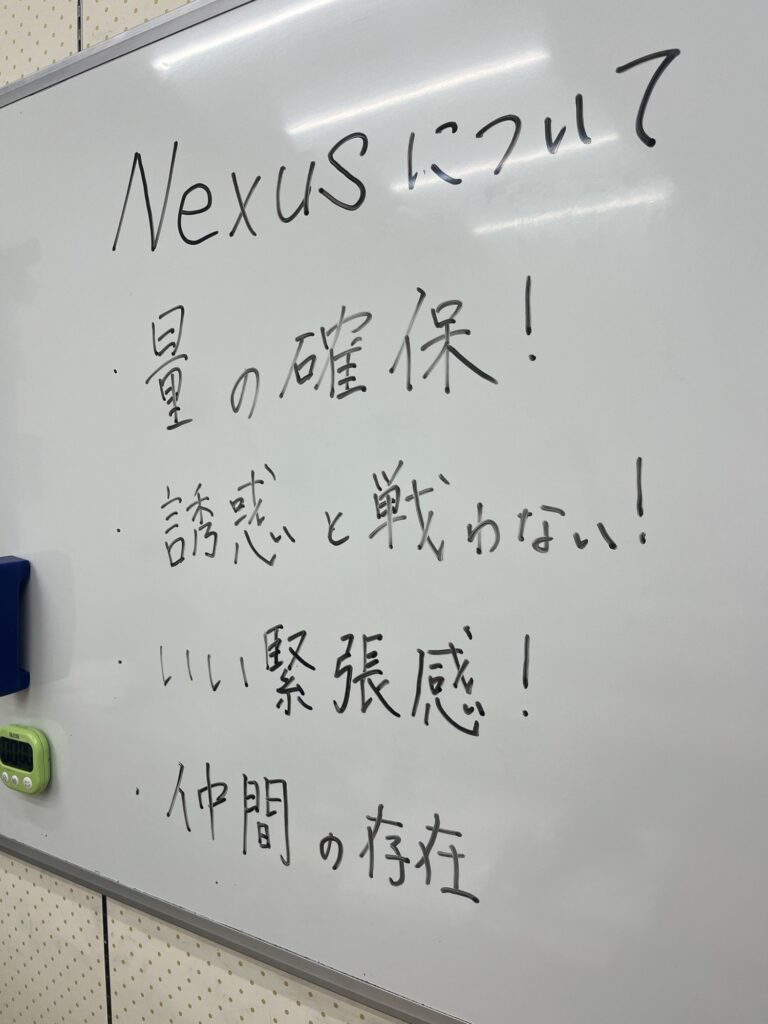 Nexusについて
・量の確保!
・誘惑と戦わない!
・いい緊張感!
・仲間の存在